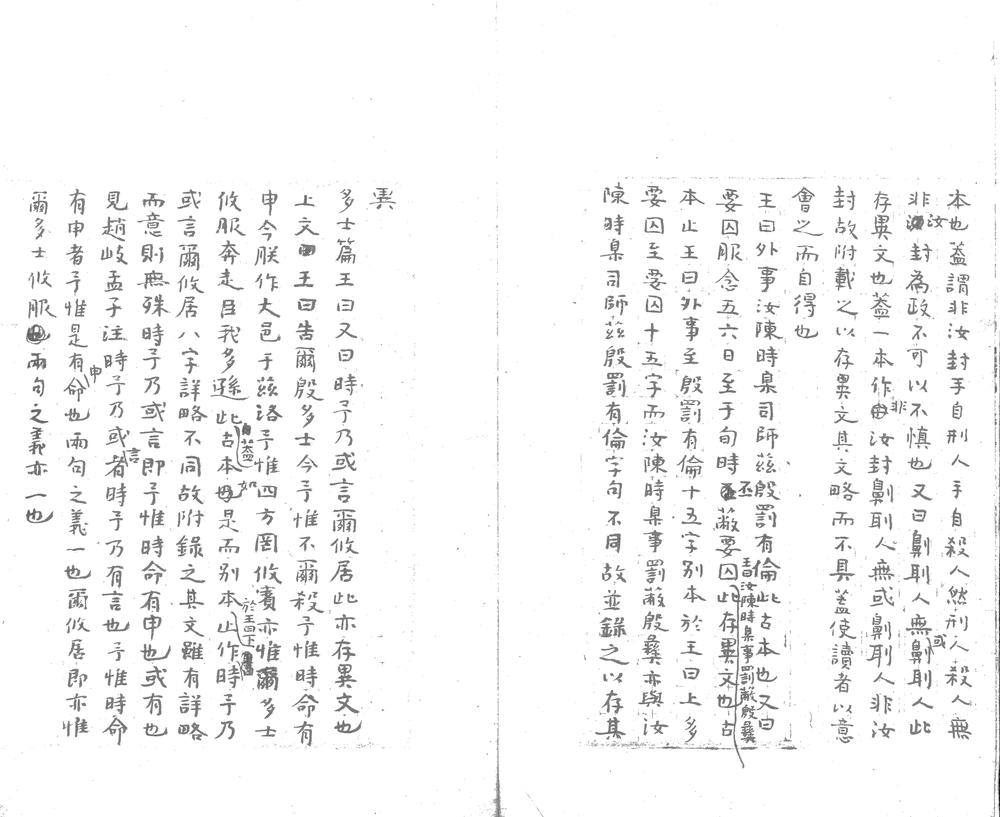 本也蓋謂非汝封手自刑人手自殺人然刑人殺人無
非汝封為政不可以不慎也又曰劓刵人無或劓刵人此
存異文也蓋一本作非汝封劓刵人無或劓刵人非汝
封故附載之以存異文其文略而不具蓋使讀者以意
會之而自得也
王曰外事汝陳時臬司師茲殷罰有倫此古本也又曰
要囚服念五六日至于旬時丕蔽要囚王曰汝陳時臬事罰蔽殷彝此存異文也古
本止王曰外事至殷罰有倫十五字別本於王曰上多
要囚至要囚十五字而汝陳時臬事罰蔽殷彝亦與汝
陳時臬司師茲殷罰有倫字句不同故並錄之以存其
異
多士篇王曰又曰時予乃或言爾攸居此亦存異文也
上文王曰告爾殷多士今予惟不爾殺予惟時命有
申今朕作大邑于茲洛予惟四方罔攸賓亦惟爾多士
攸服奔走臣我多遜此蓋古本如是而別本止作時予乃
或言爾攸居八字詳略不同故附錄之其文雖有詳略
而意則無殊時予乃或言即予惟時命有申也或有也
見趙岐孟子注時予乃或言者時予乃有言也予惟時命
有申者予惟是有申命也兩句之義一也爾攸居即亦惟
爾多士攸服兩句之義亦一也